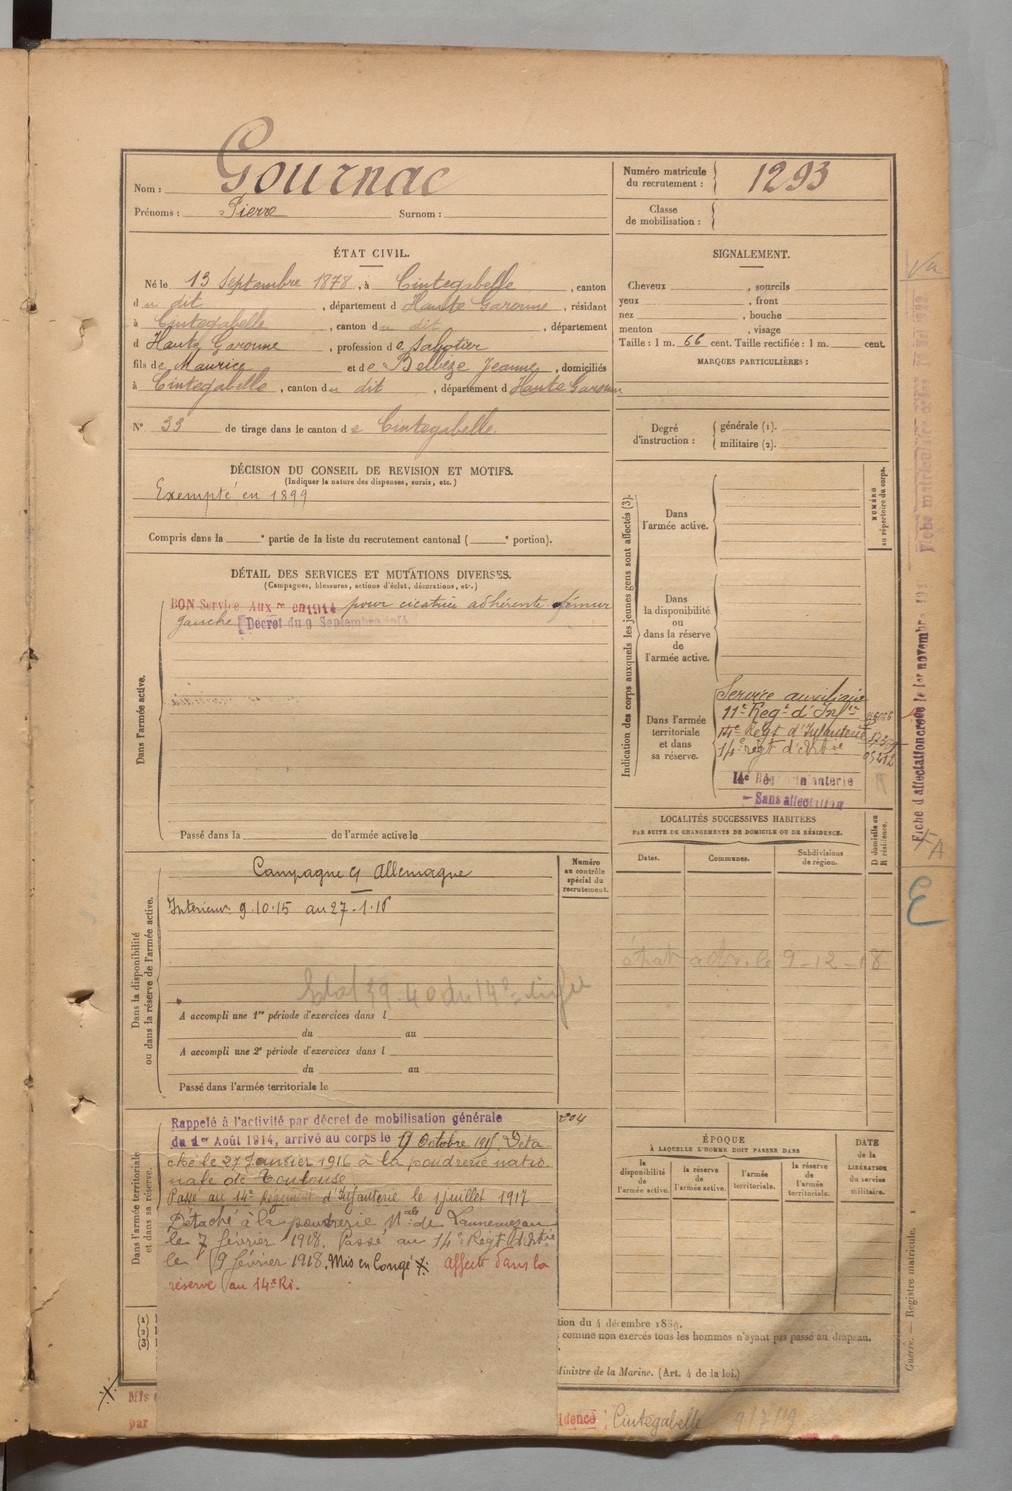 Nom : Gournac
Prénoms : Pierre Surnom :
Numéro matricule du recrutement : 1293
Classe de mobilisation :
ÉTAT CIVIL.
Né le 13 Septembre 1878, à Cintegabelle, canton
du dit, département d Haute Garonne, résidant
à Cintegabelle, canton du dit, département
d Haute Garonne, profession de Sabotier
fils de Maurice et de Bellèze Jeanne, domiciliés
à Cintegabelle, canton du dit, département d Haute Garonne
N° 33 de tirage dans le canton de Cintegabelle.
SIGNALEMENT.
Cheveux , sourcils
yeux , front
nez , bouche
menton , visage
Taille : 1 m. 66 cent. Taille rectifiée : 1 m. cent.
MARQUES PARTICULIÈRES :
Degré d'instruction : générale (1).
militaire (2).
DÉCISION DU CONSEIL DE REVISION ET MOTIFS.
(Indiquer la nature des dispenses, sursis, etc.)
Exempté en 1899
Compris dans la e partie de la liste du recrutement cantonal ( e portion).
DÉTAIL DES SERVICES ET MUTATIONS DIVERSES.
(Campagnes, blessures, actions d'éclat, décorations, etc.)
BON Service Auxre en 1914 pour cicatrice adhérente fémur
gauche Décret du 9 Septembre 1914
Dans l'armée active.
Passé dans la de l'armée active le
Indication des corps auxquels les jeunes gens sont affectés (3).
NUMÉRO au répertoire du corps.
Dans l'armée active.
Dans la disponibilité ou dans la réserve de l'armée active.
Dans l'armée territoriale et dans sa réserve.
Service auxiliaire
11e Regt d'Infie
14e Regt d'Infanterie
14e regt d'Artie
14e Rég Infanterie
Sans affectation
Dans la disponibilité ou dans la réserve de l'armée active.
Numéro au contrôle spécial du recrutement.
Campagne c/ Allemagne
Intérieur 9.10.15 au 27.1.16
Etat 39-40 du 14e
A accompli une 1re période d'exercices dans l
du au
A accompli une 2e période d'exercices dans l
du au
Passé dans l'armée territoriale le
LOCALITÉS SUCCESSIVES HABITÉES
PAR SUITE DE CHANGEMENTS DE DOMICILE OU DE RÉSIDENCE.
Dates. Communes. Subdivisions de région. D domicile ou R résidence.
9-12-18
Dans l'armée territoriale et dans sa réserve.
Rappelé à l'activité par décret de mobilisation générale
du 1er Août 1914, arrivé au corps le 9 Octobre 1915. Déta
ché le 27 Janvier 1916 à la poudrerie natio
nale de Toulouse
Passé au 14e Régiment d'Infanterie le 1 juillet 1917
Détaché à la poudrerie Nale de Lannemezan
le 7 février 1918. Passé au 14e Regt d'Artie
le 9 février 1918. Mis en Congé Affecté dans la
réserve au 14e RI.
204
ÉPOQUE
À LAQUELLE L'HOMME DOIT PASSER DANS
la disponibilité de l'armée active.
la réserve de l'armée active.
l'armée territoriale.
la réserve de l'armée territoriale.
DATE de la LIBÉRATION du service militaire.
(1)
(2)
(3)
tion du 4 décembre 1889.
comme non exercés tous les hommes n'ayant pas passé au drapeau.
Ministre de la Marine. (Art. 4 de la loi.)
Mis
par
idence : Cintegabelle 9/2/19
Fiche d'affectation créée le 1er novembre
Fiche matriculaire
E
Guerre. — Registre matricule. 1